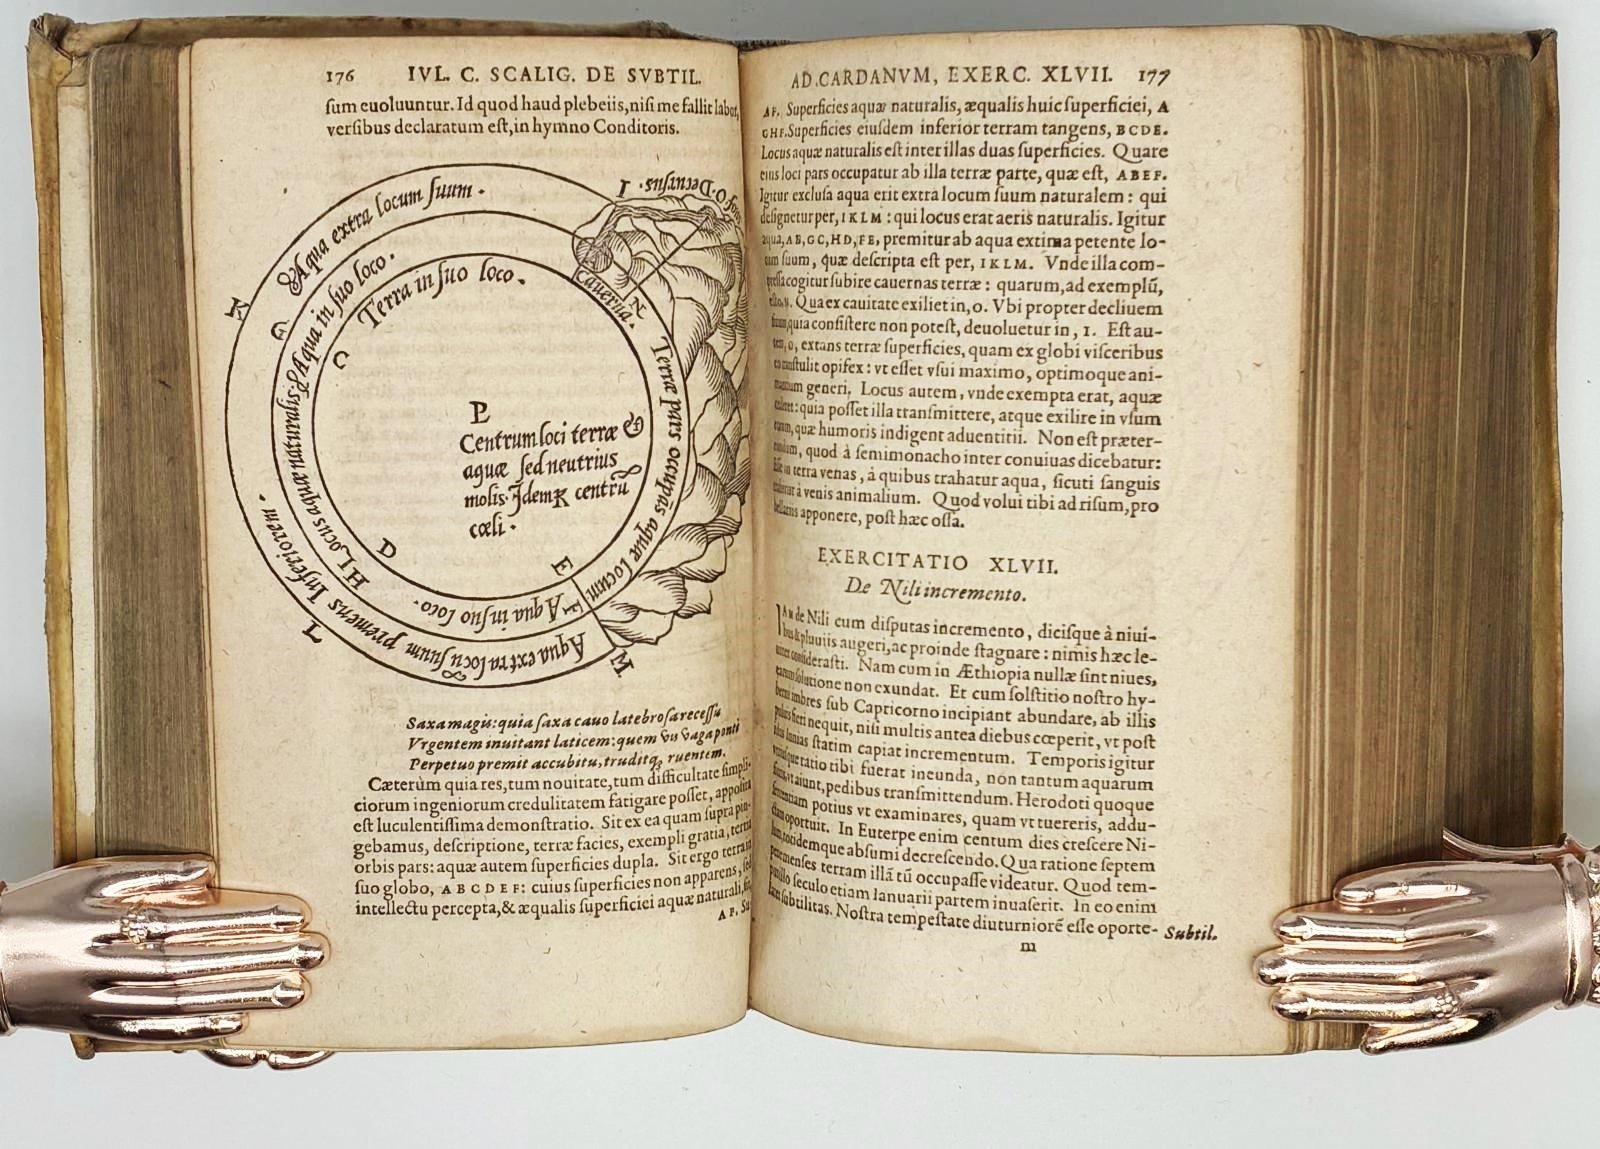 176 IVL. C. SCALIG. DE SVBTIL.
ſum euoluuntur. Id quod haud plebeiis, niſi me fallit labor,
verſibus declaratum eſt, in hymno Conditoris.
Aqua extra locum ſuum.
Decurſus. I
O
Aqua in ſuo loco.
Terra in ſuo loco.
Cauerna.
N
K
G
C
P
Centrum loci terræ &
aquæ ſed neutrius
molis. Idem R centrũ
cœli.
Terræ pars occupãs aquæ locum
Locus aquæ naturalis. & Aqua in ſuo loco.
Aqua in ſuo loco.
Aqua extra locũ ſuum premens Inferiorem.
D
H
E
F
L
M
Saxa magis: quia ſaxa cauo latebroſa receſſu
Vrgentem inuitant laticem: quem vis vaga ponti
Perpetuo premit accubitu, truditq; ruentem.
Cæterùm quia res, tum nouitate, tum difficultate ſimpli-
ciorum ingeniorum credulitatem fatigare poſſet, appoſita
eſt luculentiſſima demonſtratio. Sit ex ea quam ſupra pin-
gebamus, deſcriptione, terræ facies, exempli gratia, terreni
orbis pars: aquæ autem ſuperficies dupla. Sit ergo terra in
ſuo globo, ABCDEF: cuius ſuperficies non apparens, ſed
intellectu percepta, & æqualis ſuperficiei aquæ naturali, ſit,
AF. Su-
AD CARDANVM, EXERC. XLVII. 177
AF. Superficies aquæ naturalis, æqualis huic ſuperficiei, A
GHF. Superficies eiuſdem inferior terram tangens, BCDE.
Locus aquæ naturalis eſt inter illas duas ſuperficies. Quare
eius loci pars occupatur ab illa terræ parte, quæ eſt, ABEF.
Igitur excluſa aqua erit extra locum ſuum naturalem: qui
deſignetur per, IKLM: qui locus erat aeris naturalis. Igitur
aqua, AB, GC, HD, FE, premitur ab aqua extima petente lo-
cum ſuum, quæ deſcripta eſt per, IKLM. Vnde illa com-
preſſa cogitur ſubire cauernas terræ: quarum, ad exemplũ,
eſto, N. Qua ex cauitate exiliet in, O. Vbi propter decliuem
ſitum, quia conſiſtere non poteſt, deuoluetur in, I. Eſt au-
tem, O, extans terræ ſuperficies, quam ex globi viſceribus
eo tranſtulit opifex: vt eſſet vſui maximo, optimoque ani-
mantium generi. Locus autem, vnde exempta erat, aquæ
cederet: quia poſſet illa tranſmittere, atque exilire in vſum
eorum, quæ humoris indigent aduentitii. Non eſt præter-
eundum, quod à ſemimonacho inter conuiuas dicebatur:
Eſſe in terra venas, à quibus trahatur aqua, ſicuti ſanguis
trahatur à venis animalium. Quod volui tibi ad riſum, pro
bellariis apponere, poſt hæc oſſa.
EXERCITATIO XLVII.
De Nili incremento.
IAM de Nili cum diſputas incremento, diciſque à niui-
bus & pluuiis augeri, ac proinde ſtagnare: nimis hæc le-
uiter conſideraſti. Nam cum in Æthiopia nullæ ſint niues,
earum ſolutione non exundat. Et cum ſolſtitio noſtro hy-
berni imbres ſub Capricorno incipiant abundare, ab illis
fieri nequit, niſi multis antea diebus cœperit, vt poſt
ſtatim capiat incrementum. Temporis igitur
ratio tibi fuerat ineunda, non tantum aquarum
vt aiunt, pedibus tranſmittendum. Herodoti quoque
ſententiam potius vt examinares, quam vt tuereris, addu-
oportuit. In Euterpe enim centum dies creſcere Ni-
lum, totidemque abſumi decreſcendo. Qua ratione ſeptem
menſes terram illã tũ occupaſſe videatur. Quod tem-
ſeculo etiam Ianuarii partem inuaſerit. In eo enim
ſubtilitas. Noſtra tempeſtate diuturniorẽ eſſe oporte- Subtil.
m